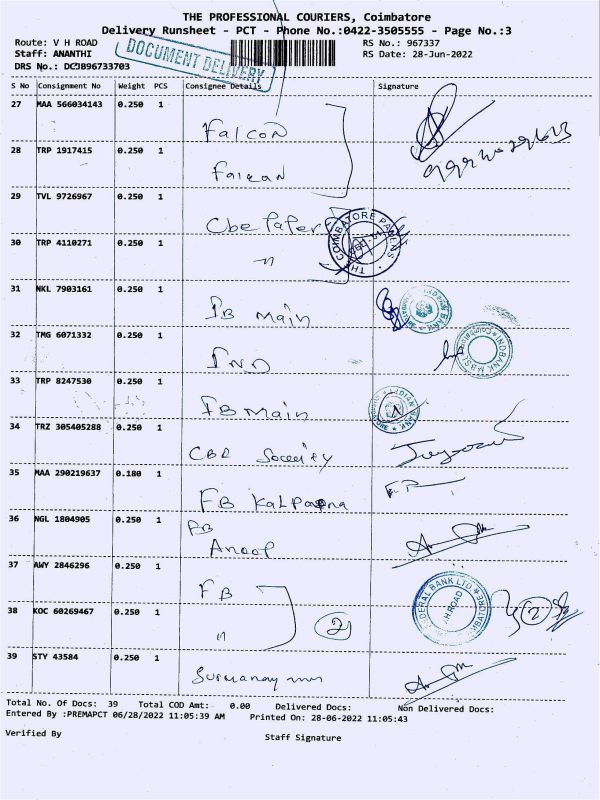 THE PROFESSIONAL COURIERS, Coimbatore
Delivery Runsheet - PCT - Phone No.:0422-3505555 - Page No.:3
Route: V H ROAD RS No.: 967337
Staff: ANANTHI RS Date: 28-Jun-2022
DOCUMENT DELIVERY
S No Consignment No Weight PCS Consignee Details Signature
27 MAA 566034143 0.250 1 Falcon
28 TRP 1917415 0.250 1 Falcan
29 TVL 9726967 0.250 1 Cbe Paper
30 TRP 4110271 0.250 1 "
31 NKL 7903161 0.250 1 IB Main
32 TMG 6071332 0.250 1 IND
33 TRP 8247530 0.250 1 IB Main
34 TRZ 305405288 0.250 1
35 MAA 290219637 0.180 1 FB Kalpana
36 NGL 1804905 0.250 1 Anoop
37 AWY 2846296 0.250 1 FB
38 KOC 60269467 0.250 1 " 2
39 STY 43584 0.250 1
Total No. Of Docs: 39 Total COD Amt: 0.00 Delivered Docs: Non Delivered Docs:
Entered By :PREMAPCT 06/28/2022 11:05:39 AM Printed On: 28-06-2022 11:05:43
Verified By Staff Signature